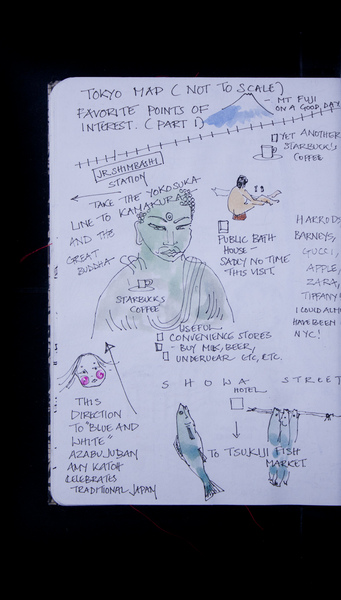 TOKYO MAP (NOT TO SCALE)
FAVORITE POINTS OF
INTEREST. (PART 1)
- MT FUJI
ON A GOOD DAY
YET ANOTHER
STARBUCK'S
COFFEE
JR SHIMBASHI
STATION
TAKE THE YOKOSUKA
LINE TO KAMAKURA
AND THE
GREAT
BUDDHA
PUBLIC BATH
HOUSE -
SADLY NO TIME
THIS VISIT.
HARRODS
BARNEYS,
GUCCI,
APPLE,
ZARA,
TIFFANY
I COULD ALM
HAVE BEEN
NYC!
STARBUCK'S
COFFEE
USEFUL
CONVENIENCE STORES
- BUY MILK, BEER,
UNDERWEAR ETC, ETC.
SHOWA STREET
HOTEL
THIS
DIRECTION
TO "BLUE AND
WHITE"
AZABU JUBAN
AMY KATOH
CELEBRATES
TRADITIONAL JAPAN
TO TSUKIJI FISH
MARKET